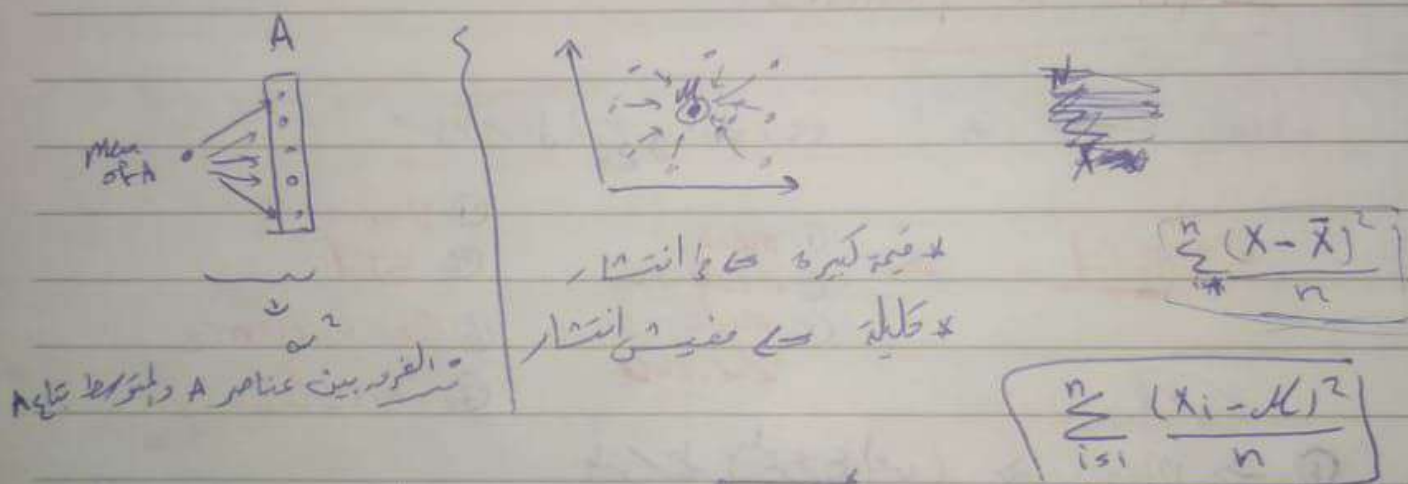 A
mean
of A
σ²
الفرق بين عناصر A والمتوسط بتاع A
μ
* قيمة كبيرة => انتشار
* قليلة => مفيش انتشار
n
∑ (X - X̄)²
n
n
∑ (Xi - μ)²
i=1 n